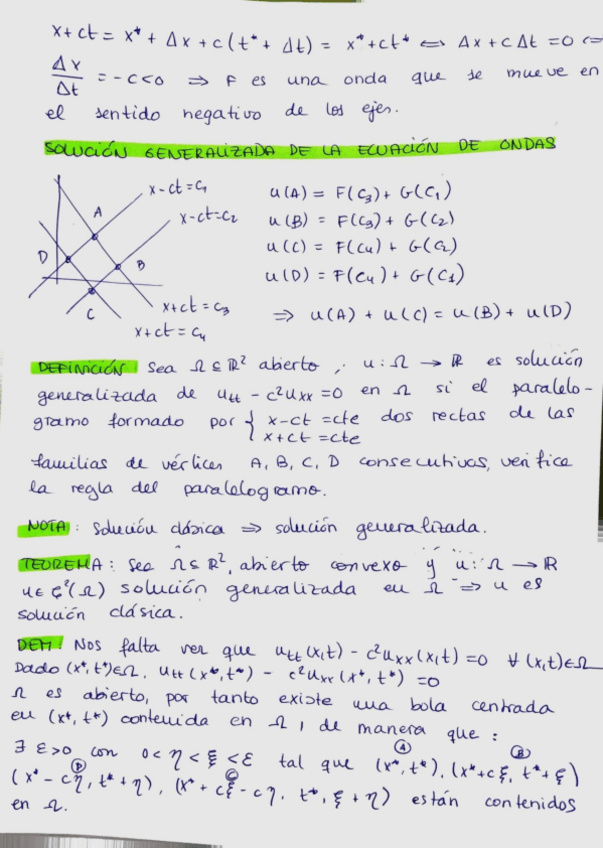 x+ct = x* + Δx + c(t* + Δt) = x*+ct* ⟺ Δx + cΔt = 0 ⟺
Δx/Δt = -c<0 ⇒ F es una onda que se mueve en
el sentido negativo de los ejes.
SOLUCIÓN GENERALIZADA DE LA ECUACIÓN DE ONDAS
x-ct=c₁
x-ct=c₂
A
D
B
C
x+ct=c₃
x+ct=c₄
u(A) = F(C₃) + G(C₁)
u(B) = F(C₃) + G(C₂)
u(C) = F(C₄) + G(C₂)
u(D) = F(C₄) + G(C₁)
⇒ u(A) + u(C) = u(B) + u(D)
DEFINICIÓN: Sea Ω ⊆ ℝ² abierto, u: Ω → ℝ es solución
generalizada de utt - c²uxx = 0 en Ω si el paralelo-
gramo formado por { x-ct=cte dos rectas de las
x+ct=cte
familias de vértices A, B, C, D consecutivos, verifice
la regla del paralelogramo.
NOTA: Solución clásica ⇒ solución generalizada.
TEOREMA: Sea Ω ⊆ ℝ², abierto convexo y u: Ω → ℝ
u∈ξ²(Ω) solución generalizada en Ω ⇒ u es
solución clásica.
DEM: Nos falta ver que utt(x,t) - c²uxx(x,t)=0 ∀(x,t)∈Ω
Dado (x*,t*)∈Ω, utt(x*,t*) - c²uxx(x*,t*)=0
Ω es abierto, por tanto existe una bola centrada
en (x*, t*) contenida en Ω, de manera que:
∃ ε>0 con 0<η<ξ<ε tal que (x*,t*), (x*+cξ, t*+ξ)
A B
(x*-cη, t*+η), (x*+cξ-cη, t*, ξ+η) están contenidos
D C
en Ω.